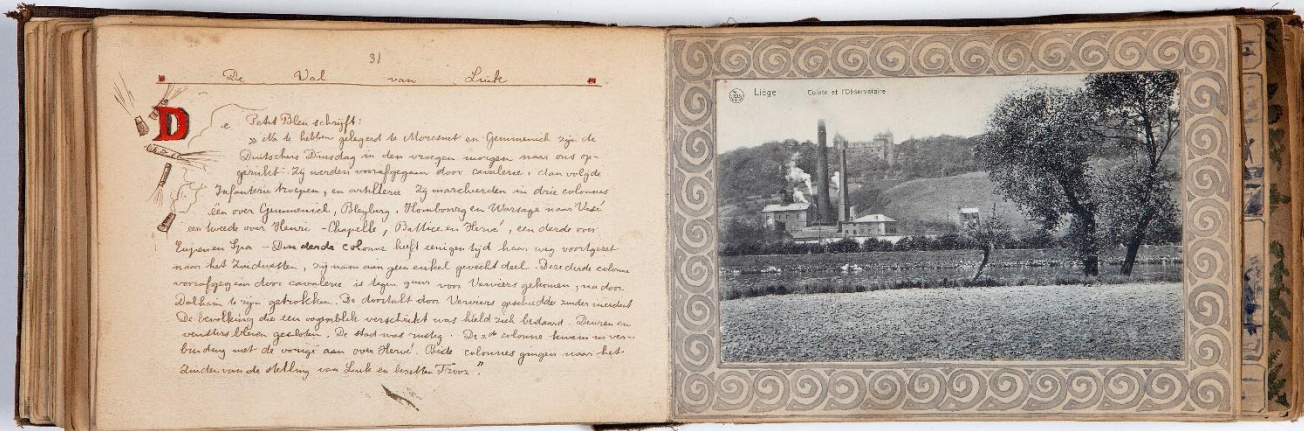 31
De Val van Luik
De Petit Bleu schrijft:
„Na te hebben gelegerd te Moresnet en Gemmenich zijn de
Duitschers Dinsdag in den vroegen morgen naar ons op-
gerukt. Zij werden voorafgegaan door cavalerie, dan volgde
Infanterie troepen, en artillerie. Zij marcheerden in drie colonnes
één over Gemmenich, Bleyberg, Hombourg en Warsage naar Visé
een tweede over Henri-Chapelle, Battice en Hervé, een derde over
Eupen en Spa - Den derde colonne heeft eenigen tijd haar weg voortgezet
naar het Zuidwesten, zij nam aan geen enkel gevecht deel. Deze derde colonne
voorafgegaan door cavalerie is tegen uur voor Verviers gekomen, na door
Dolhain te zijn getrokken. De doortocht door Verviers geschiedde zonder incident
De bevolking die een oogenblik verschrikt was hield zich bedaard. Deuren en
vensters bleven gesloten. De stad was rustig. De 2de colonne kwam in ver-
binding met de vorige aan over Hervé. Beide colonnes gingen naar het
Zuiden van de stelling van Luik en bezetten Trooz."
NELS
Liège
Cointe et l'Observatoire